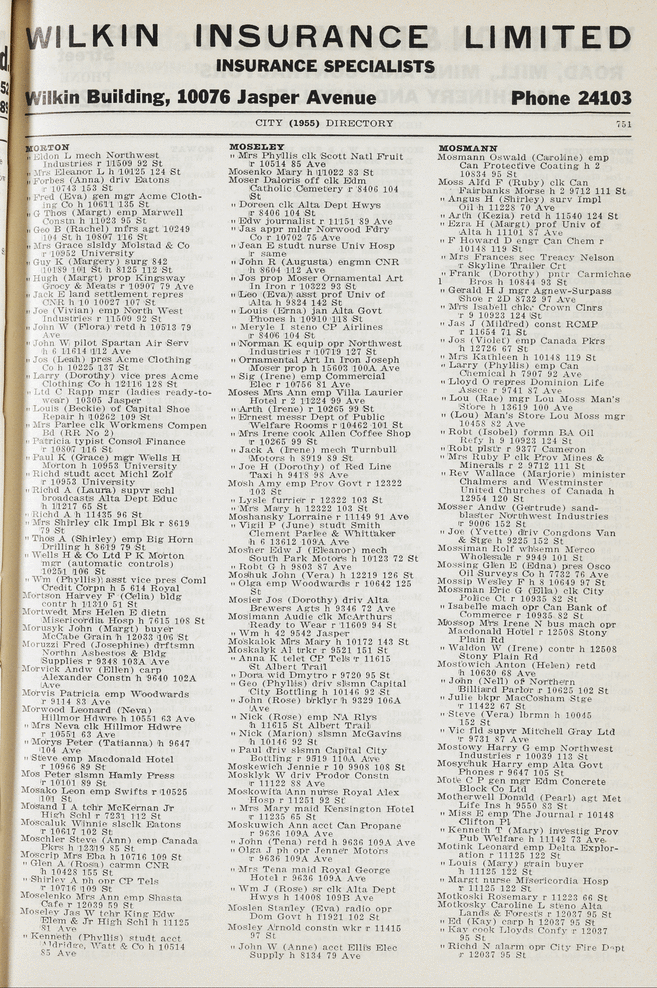 WILKIN INSURANCE LIMITED
INSURANCE SPECIALISTS
Wilkin Building, 10076 Jasper Avenue Phone 24103
CITY (1955) DIRECTORY 751
MORTON
" Eldon L mech Northwest
Industries r 11509 92 St
" Mrs Eleanor L h 10125 124 St
" Forbes (Anna) driv Eatons
r 10743 153 St
" Fred (Eva) gen mgr Acme Cloth-
ing Co h 10611 135 St
" G Thos (Margt) emp Marwell
Constn h 11023 95 St
" Geo B (Rachel) mfrs agt 10249
104 St h 10807 116 St
" Mrs Grace slsldy Molstad & Co
r 10952 University
" Guy K (Margery) surg 842
10189 101 St h 8125 112 St
" Hugh (Margt) prop Kingsway
Grocy & Meats r 10907 79 Ave
" Jack E land settlement repres
CNR h 10 10027 107 St
" Joe (Vivian) emp North West
Industries r 11509 92 St
" John W (Flora) retd h 10513 79
Ave
" John W pilot Spartan Air Serv
h 6 11614 112 Ave
" Jos (Leah) pres Acme Clothing
Co h 10225 137 St
" Larry (Dorothy) vice pres Acme
Clothing Co h 12116 128 St
" Ltd C Rapp mgr (ladies ready-to-
wear) 10305 Jasper
" Louis (Beckie) of Capital Shoe
Repair h 10262 109 St
" Mrs Parlee clk Workmens Compen
Bd (RR No 2)
" Patricia typist Consol Finance
r 10807 116 St
" Paul K (Grace) mgr Wells H
Morton h 10953 University
" Richd studt acct Michl Zolf
r 10953 University
" Richd A (Laura) supvr schl
broadcasts Alta Dept Educ
h 11217 65 St
" Richd A h 11435 96 St
" Mrs Shirley clk Impl Bk r 8619
79 St
" Thos A (Shirley) emp Big Horn
Drilling h 8619 79 St
" Wells H & Co Ltd P K Morton
mgr (automatic controls)
10251 106 St
" Wm (Phyllis) asst vice pres Coml
Credit Corpn h 5 614 Royal
Mortson Harvey F (Celia) bldg
contr h 11310 51 St
Mortwedt Mrs Helen E dietn
Misericordia Hosp h 7615 108 St
Morusyk John (Margt) buyer
McCabe Grain h 12033 106 St
Moruzzi Fred (Josephine) drftsmn
Northn Asbestos & Bldg
Supplies r 9348 103A Ave
Morvick Andw (Ellen) carp
Alexander Constn h 9640 102A
Ave
Morvis Patricia emp Woodwards
r 9114 83 Ave
Morwood Leonard (Neva)
Hillmor Hdwre h 10551 63 Ave
" Mrs Neva clk Hillmor Hdwre
r 10551 63 Ave
" Morys Peter (Tatianna) h 9647
104 Ave
" Steve emp Macdonald Hotel
r 10966 89 St
Mos Peter slsmn Hamly Press
r 10101 89 St
Mosako Leon emp Swifts r 10525
101 St
Mosand I A tchr McKernan Jr
High Schl r 7231 112 St
Moscaluk Winnie slsclk Eatons
r 10617 102 St
Moschler Steve (Ann) emp Canada
Pkrs h 12319 85 St
Moscrip Mrs Eba h 10716 109 St
" Glen A (Rosa) carmn CNR
h 10428 155 St
" Shirley A ph opr CP Tels
r 10716 109 St
Moselenko Mrs Ann emp Shasta
Cafe r 12039 59 St
Moseley Jas W tchr King Edw
Elem & Jr High Schl h 11125
81 Ave
" Kenneth (Phyllis) studt acct
Aldridge, Watt & Co h 10514
85 Ave
MOSELEY
" Mrs Phyllis clk Scott Natl Fruit
r 10514 85 Ave
Mosenko Mary h 11022 83 St
Moser Daloris off clk Edm
Catholic Cemetery r 8406 104
St
" Doreen clk Alta Dept Hwys
r 8406 104 St
" Edw journalist r 11151 89 Ave
" Jas appr mldr Norwood Fdry
Co r 10702 75 Ave
" Jean studt nurse Univ Hosp
r same
" John R (Augusta) engmn CNR
h 8604 112 Ave
" Jos prop Moser Ornamental Art
In Iron r 10322 93 St
" Leo (Eva) asst prof Univ of
Alta h 9824 142 St
" Louis (Erna) jan Alta Govt
Phones h 10910 118 St
" Meryle I steno CP Airlines
r 8406 104 St
" Norman K equip opr Northwest
Industries r 10719 127 St
" Ornamental Art In Iron Joseph
Moser prop h 15603 100A Ave
" Sig (Irene) emp Commercial
Elec r 10756 81 Ave
Moses Mrs Ann emp Villa Laurier
Hotel r 2 11224 99 Ave
" Arth (Irene) r 10265 99 St
" Ernest messr Dept of Public
Welfare Rooms r 10462 101 St
" Mrs Irene cook Allen Coffee Shop
r 10265 99 St
" Jack A (Irene) mech Turnbull
Motors h 8919 89 St
" Joe H (Dorothy) of Red Line
Taxi h 9418 98 Ave
Mosh Amy emp Prov Govt r 12322
103 St
" Lysle furrier r 12322 103 St
" Mrs Mary h 12322 103 St
Moshansky Lorraine r 11149 91 Ave
" Vigil P (June) studt Smith
Clement Parlee & Whittaker
h 6 13612 109A Ave
Mosher Edw J (Eleanor) mech
South Park Motors h 10123 72 St
" Robt G h 9803 87 Ave
Moshuk John (Vera) h 12219 126 St
" Olga emp Woodwards r 10642 125
St
Mosier Jos (Dorothy) driv Alta
Brewers Agts h 9346 72 Ave
Mosimann Audie clk McArthurs
Ready to Wear r 11609 94 St
" Wm h 42 9542 Jasper
Moskalok Mrs Mary h 10172 143 St
Moskalyk Al trkr r 9521 151 St
" Anna K telet CP Tels r 11615
St Albert Trail
" Dora wid Dmytro r 9720 95 St
" Geo (Phyllis) driv slsmn Capital
City Bottling h 10146 92 St
" John (Rose) brklyr h 9329 106A
Ave
" Nick (Rose) emp NA Rlys
h 11615 St Albert Trail
" Nick (Marion) slsmn McGavins
h 10146 92 St
" Paul driv slsmn Capital City
Bottling r 9519 110A Ave
Moskewich Jennie r 10 9908 108 St
Mosklyk W driv Prodor Constn
r 11122 88 Ave
Moskowita Ann nurse Royal Alex
Hosp r 11251 92 St
" Mrs Mary maid Kensington Hotel
r 11235 65 St
Moskuwich Ann acct Can Propane
r 9636 109A Ave
" John (Tena) retd h 9636 109A Ave
" Olga J ph opr Jenner Motors
r 9636 109A Ave
" Mrs Tena maid Royal George
Hotel r 9636 109A Ave
" Wm J (Rose) sr clk Alta Dept
Hwys h 14008 109B Ave
Moslen Stanley (Eva) radio opr
Dom Govt h 11921 102 St
Mosley Arnold constn wkr r 11415
97 St
" John W (Anne) acct Ellis Elec
Supply h 8134 79 Ave
MOSMANN
Mosmann Oswald (Caroline) emp
Can Protective Coating h 2
10834 95 St
Moss Alfd F (Ruby) clk Can
Fairbanks Morse h 2 9712 111 St
" Angus H (Shirley) surv Impl
Oil h 11228 70 Ave
" Arth (Kezia) retd h 11540 124 St
" Ezra H (Margt) prof Univ of
Alta h 11101 87 Ave
" F Howard D engr Can Chem r
10148 119 St
" Mrs Frances sec Treacy Nelson
r Skyline Trailer Crt
" Frank (Dorothy) pntr Carmichael
Bros h 10844 93 St
" Gerald H J mgr Agnew-Surpass
Shoe r 2D 8732 97 Ave
" Mrs Isabell chkr Crown Clnrs
r 9 10923 124 St
" Jas J (Mildred) const RCMP
r 11654 71 St
" Jos (Violet) emp Canada Pkrs
h 12726 67 St
" Mrs Kathleen h 10148 119 St
" Larry (Phyllis) emp Can
Chemical h 7907 92 Ave
" Lloyd O repres Dominion Life
Assce r 9741 87 Ave
" Lou (Rae) mgr Lou Moss Man's
Store h 13619 100 Ave
" (Lou) Man's Store Lou Moss mgr
10458 82 Ave
" Robt (Isobel) formn BA Oil
Refy h 9 10923 124 St
" Robt plstr r 9377 Cameron
" Mrs Ruby P clk Prov Mines &
Minerals r 2 9712 111 St
" Rev Wallace (Marjorie) minister
Chalmers and Westminster
United Churches of Canada h
12954 120 St
Mosser Andw (Gertrude) sand-
blaster Northwest Industries
r 9006 152 St
" Joe (Yvette) driv Congdon Van
& Stge h 9225 152 St
Mossiman Rolf whsemn Merco
Wholesale r 9949 101 St
Mossing Glen E (Edna) pres Osco
Oil Surveys Co h 7732 76 Ave
Mossip Wesley P h 8 10649 97 St
Mossman Eric G (Ella) clk City
Police Ct r 10935 82 St
" Isabelle mach opr Can Bank of
Commerce r 10935 82 St
Mossop Mrs Irene N bus mach opr
Macdonald Hotel r 12508 Stony
Plain Rd
" Waldon W (Irene) contr h 12508
Stony Plain Rd
Mostowich Anton (Helen) retd
h 10630 68 Ave
" John (Nell) of Northern
Billiard Parlor r 10625 102 St
" Julie bkpr MacCosham Stge
r 11422 67 St
" Steve (Vera) lbrmn h 10045
152 St
" Vic fld supvr Mitchell Gray Ltd
r 9731 87 Ave
Mostowy Harry G emp Northwest
Industries r 10039 113 St
Mosychuk Harry emp Alta Govt
Phones r 9647 105 St
Mote C P gen mgr Edm Concrete
Block Co Ltd
Motherwell Donald (Pearl) agt Met
Life Ins h 9550 83 St
" Miss E emp The Journal r 10148
Clifton Pl
" Kenneth T (Mary) investig Prov
Pub Welfare h 11142 73 Ave
Motink Leonard emp Delta Explor-
ation r 11125 122 St
" Louis (Mary) grain buyer
h 11125 122 St
" Margt nurse Misericordia Hosp
r 11125 122 St
Motkoski Rosemary r 11223 66 St
Motkosky Caroline L steno Alta
Lands & Forests r 12037 95 St
" Ed (Kay) corp h 12037 95 St
" Kay cook Lloyds Confy r 12037
95 St
" Richd N alarm opr City Fire Dept
r 12037 95 St